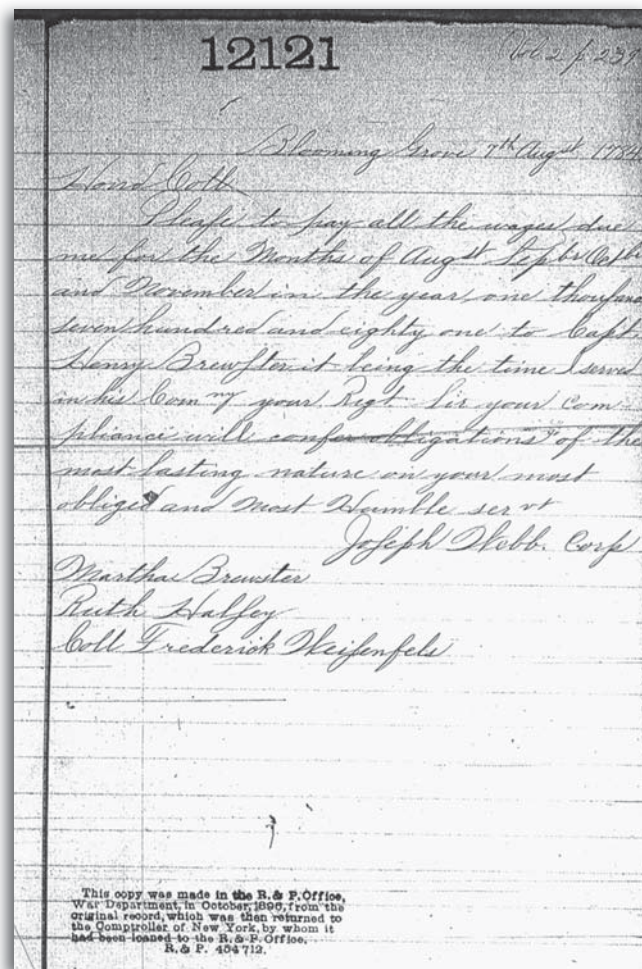 12121
Vol 2 p 239
Blooming Grove 7th Augst 1784
Hond Coll
Please to pay all the wages due
me for the Months of Augst Sepbr Octbr
and November in the year one thousand
seven hundred and eighty one to Capt.
Henry Brewster it being the time I served
in his Comny your Regt Sir your Com-
pliance will confer obligations of the
most lasting nature on your most
obliged and most Humble servt
Joseph Webb. Corp
Martha Brewster
Ruth Halsey
Coll Frederick Weisenfels
This copy was made in the R. & P. Office,
War Department, in October, 1896, from the
original record, which was then returned to
the Comptroller of New York, by whom it
had been loaned to the R. & P. Office.
R. & P. 454712.